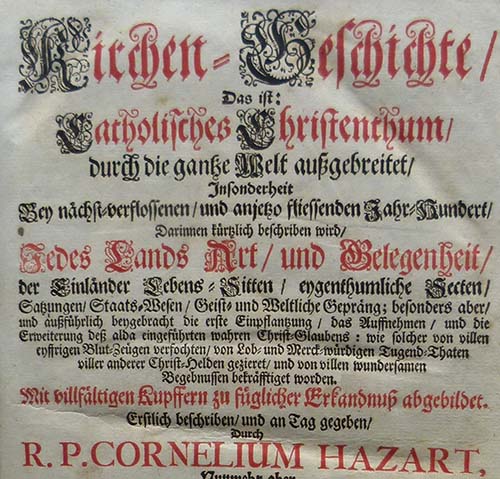 Kirchen-Geschichte/
Das ist:
Catholisches Christenthum/
durch die gantze Welt außgebreitet/
Insonderheit
Bey nächst-verflossenen/ und anjetzo fliessenden Jahr-Hundert/
Darinnen kürtzlich beschriben wird/
Jedes Lands Art/ und Gelegenheit/
der Einländer Lebens-Sitten/ eygenthumliche Secten/
Satzungen/ Staats-Wesen/ Geist- und Weltliche Gepräng; besonders aber/
und außführlich beygebracht die erste Einpflantzung/ das Auffnehmen/ und die
Erweiterung deß alda eingeführten wahren Christ-Glaubens: wie solcher von villen
eyfrigen Blut-Zeugen verfochten/ von Lob- und Merck-würdigen Tugend-Thaten
viller anderer Christ-Helden gezieret/ und von villen wundersamen
Begebnussen bekräfftiget worden.
Mit villfältigen Kupffern zu füglicher Erkandnuß abgebildet.
Erstlich beschriben/ und an Tag gegeben/
Durch
R. P. CORNELIUM HAZART,
Nunmehr aber